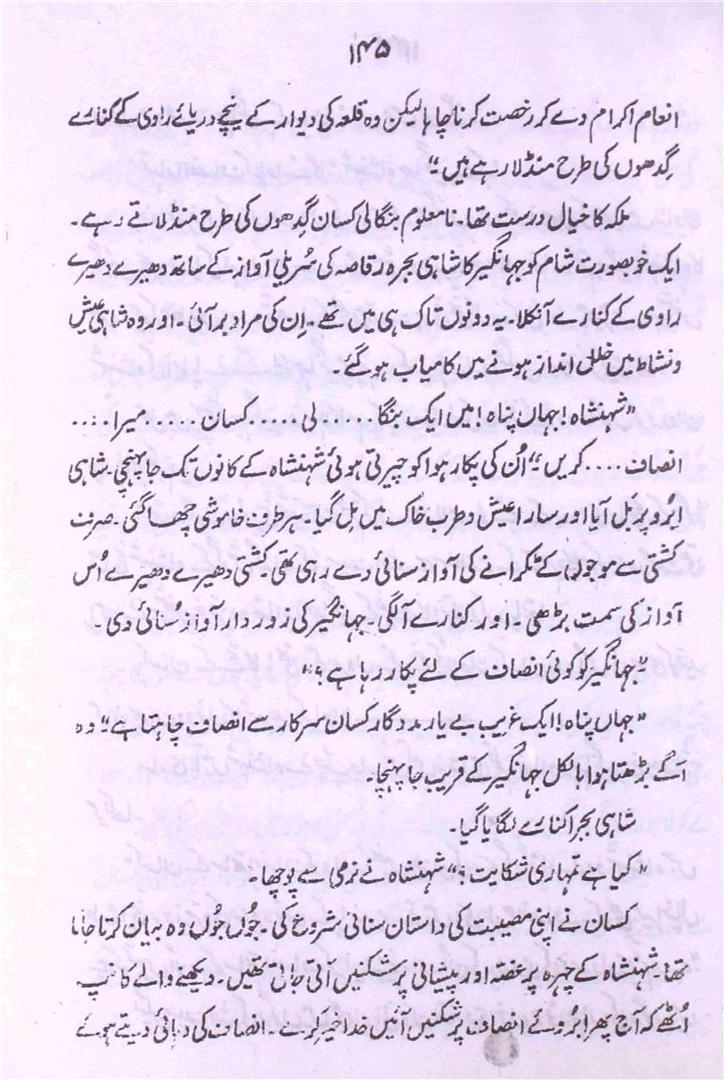 ۱۴۵
انعام اکرام دے کر رخصت کرنا چاہا لیکن وہ قلعہ کی دیوار کے نیچے دریائے راوی کے کنارے
گِدھوں کی طرح منڈلا رہے ہیں۔"
ملکہ کا خیال درست تھا۔ نامعلوم بنگالی کسان گِدھوں کی طرح منڈلاتے رہے۔
ایک خوبصورت شام کو جہانگیر کا شاہی بجرہ رقاصہ کی سُریلی آواز کے ساتھ دھیرے دھیرے
راوی کے کنارے آنکلا۔ یہ دونوں تاک ہی میں تھے۔ اِن کی مراد بر آئی۔ اور وہ شاہی عیش
و نشاط میں خلل انداز ہونے میں کامیاب ہو گئے۔
"شہنشاہ! جہاں پناہ! میں ایک بنگا.... لی.... کسان.... میرا....
انصاف.... کریں۔" اُن کی پکار ہوا کو چیرتی ہوئی شہنشاہ کے کانوں تک جا پہنچی۔ شاہی
ابرو پر بَل آیا اور سارا عیش و طرب خاک میں مل گیا۔ ہر طرف خاموشی چھا گئی۔ صرف
کشتی سے موجوں کے ٹکرانے کی آواز سنائی دے رہی تھی۔ کشتی دھیرے دھیرے اُس
آواز کی سمت بڑھی۔ اور کنارے آ لگی۔ جہانگیر کی زور دار آواز سُنائی دی۔
"جہانگیر کو کوئی انصاف کے لئے پکار رہا ہے؟"
"جہاں پناہ! ایک غریب بے یار و مددگار کسان سرکار سے انصاف چاہتا ہے" وہ
آگے بڑھتا ہوا بالکل جہانگیر کے قریب جا پہنچا۔
شاہی بجرا کنارے لگایا گیا۔
"کیا ہے تمہاری شکایت؟" شہنشاہ نے نرمی سے پوچھا۔
کسان نے اپنی مصیبت کی داستان سنانی شروع کی۔ جُوں جُوں وہ بیان کرتا جاتا
تھا۔ شہنشاہ کے چہرہ پر غصہ اور پیشانی پر شکنیں آتی جاتی تھیں۔ دیکھنے والے کانپ
اُٹھے کہ آج پھر ابروئے انصاف پر شکنیں آئیں خدا خیر کرے۔ انصاف کی دہائی دیتے ہوئے